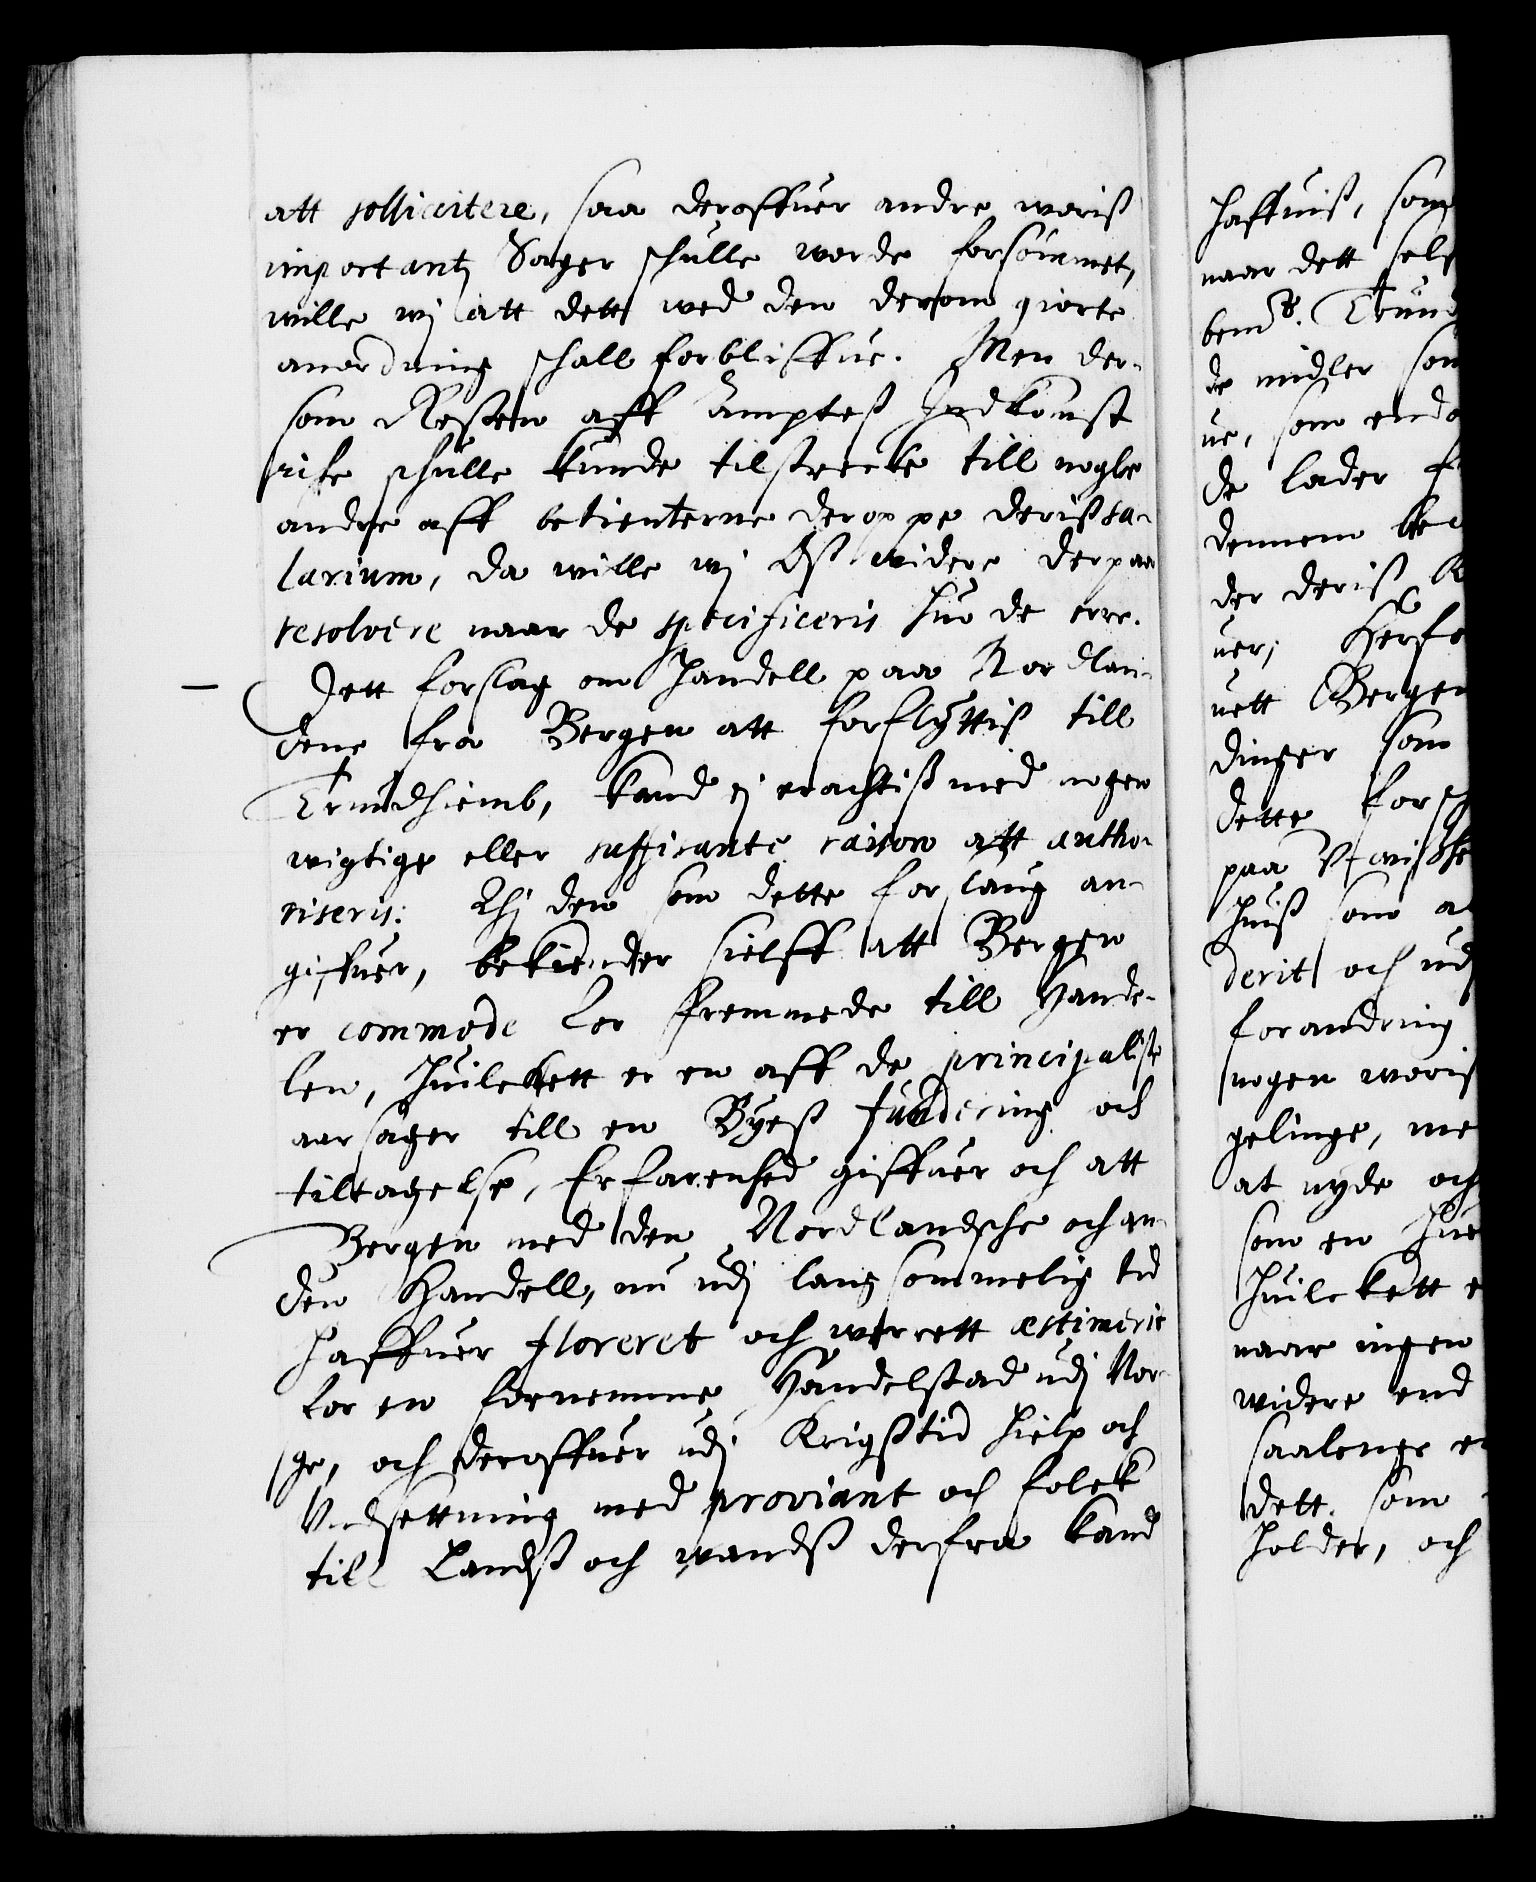 att sollicitere, saa deroffuer andre woriß
importantz Sager schulle worde forsømmet,
wille wj att dett wed den derom giorte
anordning schall forbliffue. Men der-
som Resten aff Ampteß Indkomst
icke schulle kunde tilstrecke till nogle
andre aff betienterne deroppe deriß sa-
larium, da wille wj Oß widere derpaa
resolvere naar de specificeris huo de erre.
Dett forslag om handell paa Nordlan-
dene fra Bergen att forflyttiß till
Trundhiemb, kand ej erachtiß med nogen
wigtige eller suffisante raison att autho-
riseris: Thj den som dette forslaug an-
giffuer, bekiender sielff att Bergen
er commode for fremmede till Hande-
len, huilckett er en aff de principaliste
aarsager till en Byeß fundering och
tiltagelse, Erfarenhed giffuer och att
Bergen med den Nordlandsche och an-
den Handell, nu udj langsommelig tid
haffuer floreret och werrett æstimerit
for en fornemme Handelstad udj Nor-
ge, och deroffuer udj Krigßtid hielp och
Vndsettning med proviant och folck
till Landß och wandß derfra kand
haffuiß, som
naar dett sel
bemte. Trund
de midler som
ue, som end
de lader f
dennem be
der deriß K
uer; Herfo
uett Bergen
dinger som
dette forsl
paa V-wisse
huiß som a
derit och udj
forandring
nogen woriß
gelinge, me
at nyde och
som en hue
huilckett e
naar ingen
widere end
saalenge e
dett som
holder, och